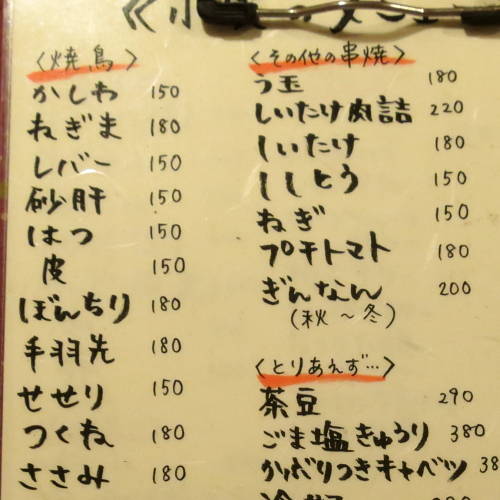 〈焼鳥〉
かしわ 150
ねぎま 180
レバー 150
砂肝 150
はつ 150
皮 150
ぼんちり 180
手羽先 180
せせり 150
つくね 180
ささみ 180
〈その他の串焼〉
う玉 180
しいたけ肉詰 220
しいたけ 180
ししとう 150
ねぎ 150
プチトマト 180
ぎんなん 200
(秋〜冬)
〈とりあえず…〉
茶豆 290
ごま塩きゅうり 380
かじりつきキャベツ 38